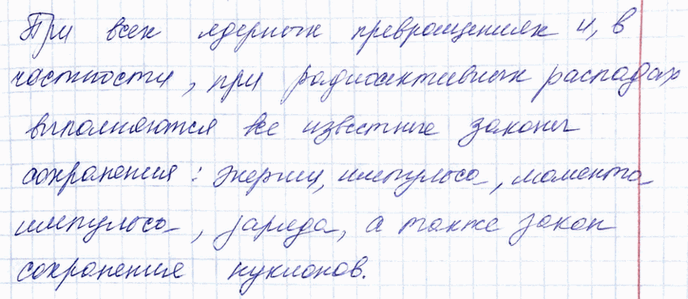 При всех ядерных превращениях и, в
частности, при радиоактивных распадах
выполняются все известные законы
сохранения: энергии, импульса, момента
импульса, заряда, а также закон
сохранения нуклонов.